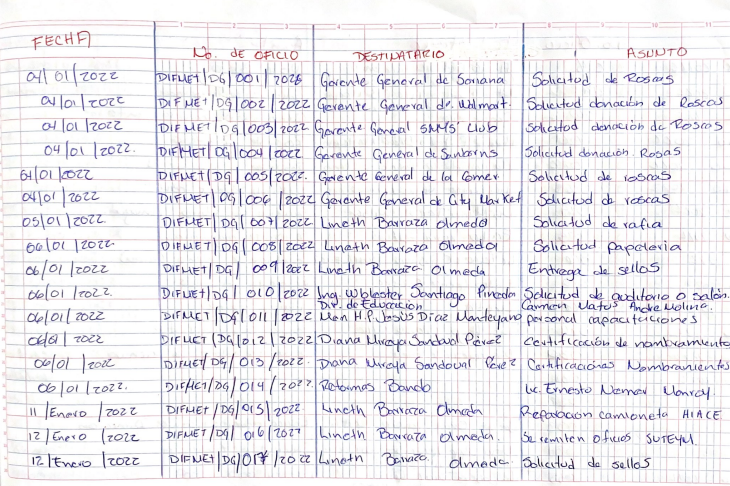 FECHA No. de OFICIO DESTINATARIO ASUNTO
04/01/2022 DIFMET/DG/001/2028 Gerente General de Soriana Solicitud de Roscas
04/01/2022 DIFMET/DG/002/2022 Gerente General de Walmart. Solicitud donación de Roscas
04/01/2022 DIFMET/DG/003/2022 Gerente General SAMS Club Solicitud donación de Roscas
04/01/2022. DIFMET/DG/004/2022 Gerente General de Sanborns Solicitud donación Rosas
04/01/2022 DIFMET/DG/005/2022. Gerente General de la Comer Solicitud de roscas
04/01/2022 DIFMET/DG/006/2022 Gerente General de City Market Solicitud de roscas
05/01/2022 DIFMET/DG/007/2022 Lineth Barraza Olmeda Solicitud de rafia
06/01/2022 DIFMET/DG/008/2022 Lineth Barraza Olmeda Solicitud papeleria
06/01/2022 DIFMET/DG/009/2022 Lineth Barraza Olmeda Entrega de sellos
06/01/2022. DIFMET/DG/010/2022 Ing Santiago Pineda Solicitud de auditorio o salón.
Dir. de Educación Carmen Matus Molina.
06/01/2022 DIFMET/DG/011/2022 H.P. Jesús Díaz personal capacitaciones
06/01/2022 DIFMET/DG/012/2022 Diana Mireya Sandoval Pérez Certificación de nombramiento
06/01/2022 DIFMET/DG/013/2022 Diana Mireya Sandoval Pérez Certificaciones Nombramientos
06/01/2022. DIFMET/DG/014/2022. Reformas Bando Lic. Ernesto Nemer
11/Enero/2022 DIFMET/DG/015/2022. Lineth Barraza Olmeda Reparación camioneta HIACE
12/Enero/2022 DIFMET/DG/016/2022 Lineth Barraza Olmeda. Se remiten oficios SUTEYM
12/Enero/2022 DIFMET/DG/017/2022 Lineth Barraza Olmeda Solicitud de sellos